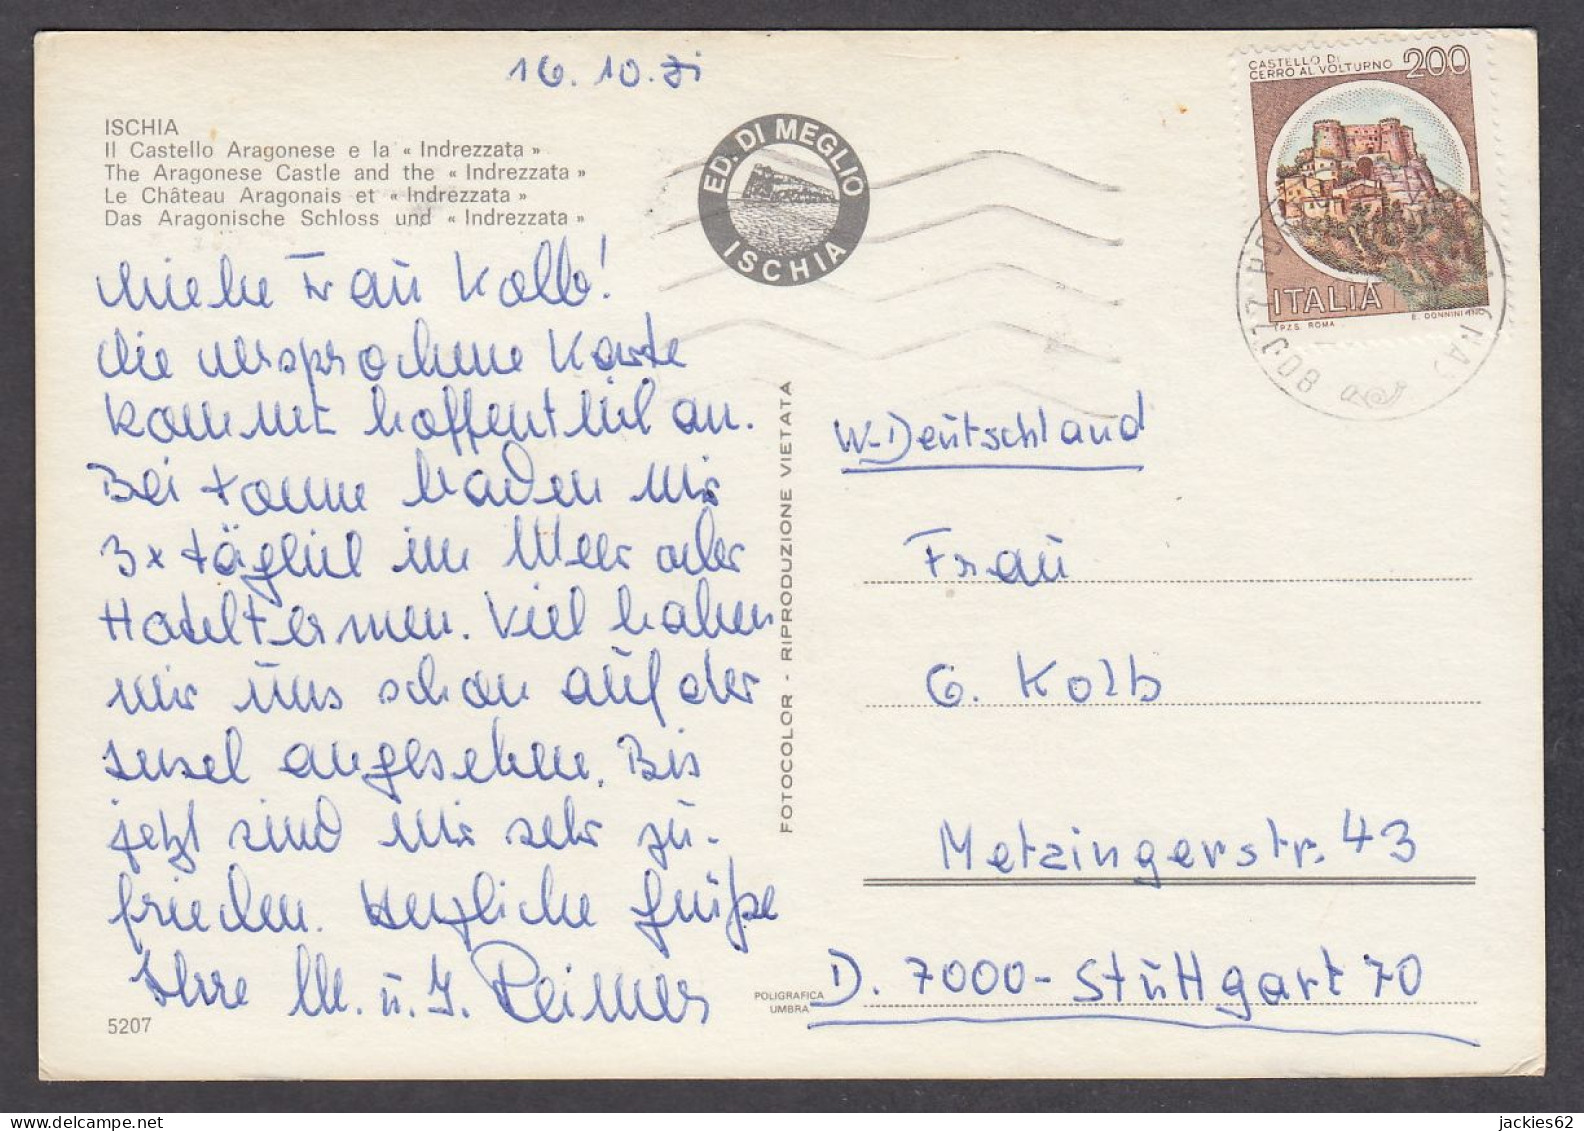 16.10.81
ISCHIA
Il Castello Aragonese e la « Indrezzata »
The Aragonese Castle and the « Indrezzata »
Le Château Aragonais et « Indrezzata »
Das Aragonische Schloss und « Indrezzata »
ED. DI MEGLIO
ISCHIA
CASTELLO DI
CERRO AL VOLTURNO 200
ITALIA
I.P.Z.S. ROMA E. DONNINI INC.
80077 PORTO (NA)
Liebe Frau Kolb!
die versprochene Karte
kommt hoffentlich an.
Bei Sonne baden wir
3x täglich im Meer oder
Hoteltermen. Viel haben
wir uns schon auf der
Insel angesehen. Bis
jetzt sind wir sehr zu-
frieden. Herzliche Grüße
Ihre M. u. J. Reimer
5207
FOTOCOLOR - RIPRODUZIONE VIETATA
POLIGRAFICA
UMBRA
W-Deutschland
Frau
G. Kolb
Metzingerstr. 43
D. 7000-Stuttgart 70
jackies62